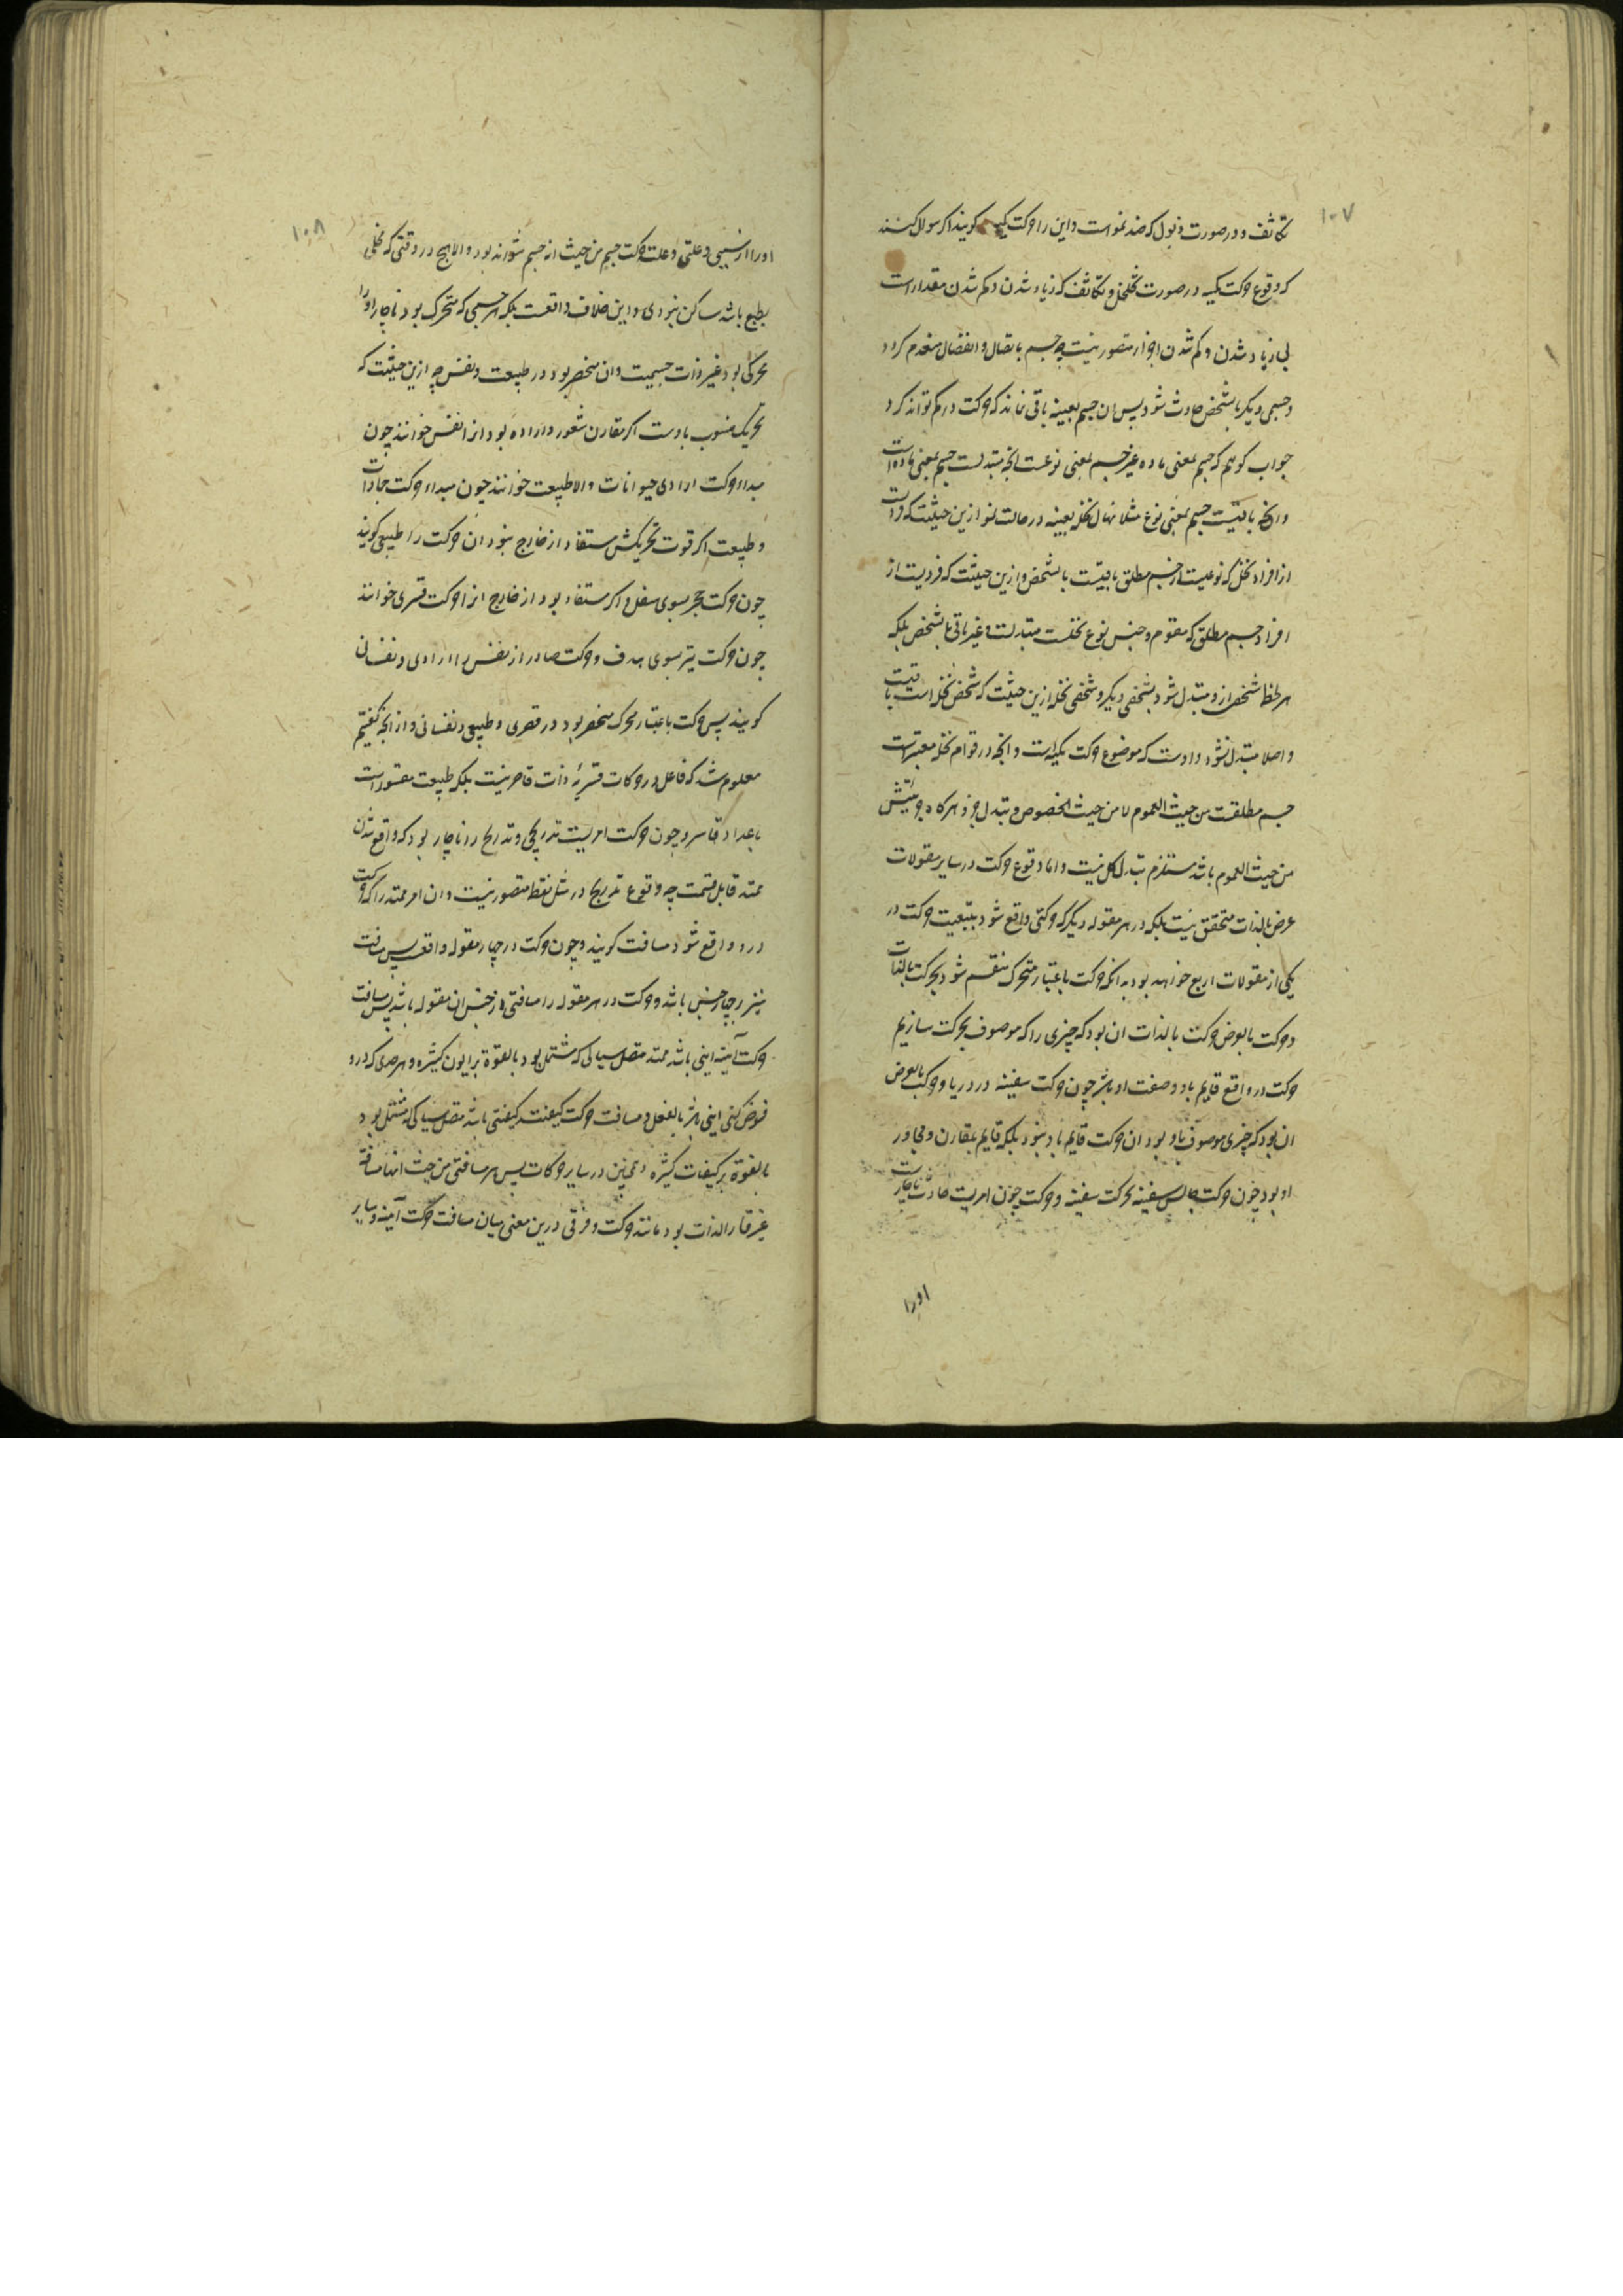 ۱۰۷
تکاثف و در صورت ذبول که ضد نمو است و این را حرکت کمیه گویند اکر سوال کنند
که وقوع حرکت کمیه در صورت تخلخل و تکاثف که زیاد شدن و کم شدن مقدار است
بی زیاد شدن و کم شدن اجزا متصور نیست چه جسم باتصال و انفصال منعدم کردد
و جسمی دیکر بالشخص حادث شود پس ان جسم بعینه باقی نماند که حرکت در کم تواند کرد
جواب کوییم که جسم بمعنی ماده غیر جسم بمعنی نوعست انچه متبدلست جسم بمعنی ماده است
و انچه باقیست جسم بمعنی نوع مثلا نهال نخل بعینه در حالت نمو ازین حیثیت که فردیست
از افراد نخل که نوعیست از جسم مطلق باقیست بالشخص و ازین حیثیت که فردیست از
افراد جسم مطلق که مقوم و جنس نوع نخلست متبدلست و غیر باقی بالشخص بلکه
هر لحظه شخصی ازو متبدل شود بشخصی دیکر و شخصی نخل ازین حیثیت که شخص نخل است باقیست
و اصلا متبدل نشود و اوست که موضوع حرکت کمیه است و انچه در قوام نخل معتبر است
جسم مطلقست من حیث العموم لا من حیث الخصوص و تبدل جزو هرکاه جزئیتش
من حیث العموم باشد مستلزم تبدل کل نیست و اما وقوع حرکت در سایر مقولات
عرض بالذات متحقق نیست بلکه در هر مقوله دیکر که حرکتی واقع شود بتبعیت حرکت در
یکی از مقولات اربع خواهد بود بدانکه حرکت باعتبار متحرک منقسم شود بحرکت بالذات
و حرکت بالعرض حرکت بالذات ان بود که چیزی را که موصوف بحرکت سازیم
حرکت در واقع قایم باو و صفت او باشد چون حرکت سفینه در دریا و حرکت بالعرض
ان بود که چیزی موصوف باو بود ان حرکت قایم باو نبود بلکه قایم بمقارن و مجاور
او بود چون حرکت جالس سفینه بحرکت سفینه و حرکت چون امریست حادث ناچارست
اورا
۱۰۸
اورا از سببی و علتی و علت حرکت جسم من حیث انه جسم نتواند بود و الا هیچ در وقتی که مخلی
بطبع باشد ساکن نبودی و این خلاف واقعست بلکه هر جسمی که متحرک بود ناچار اورا
محرکی بود غیر ذات جسمیت و ان منحصر بود در طبیعت و نفس چه ازین حیثیت که
تحریک منسوب باوست اکر مقارن شعور و اراده بود انرا نفس خوانند چون
مبداء حرکت ارادی حیوانات و الا طبیعت خوانند چون مبداء حرکت جمادات
و طبیعت اکر قوت تحریکش مستفاد از خارج نبود ان حرکت را طبیعی کویند
چون حرکت حجر بسوی سفل و اکر مستفاد بود از خارج انرا حرکت قسری خوانند
چون حرکت تیر بسوی هدف و حرکت صادر از نفس را ارادی و نفسانی
کویند پس حرکت باعتبار محرک منحصر بود در قسری و طبیعی و نفسانی و از انچه کفتیم
معلوم شد که فاعل در حرکات قسریه ذات قاصر نیست بلکه طبیعت مقسور است
باعداد قاسر و چون حرکت امریست تدریجی و تدریج را ناچار بود که واقع شدن
ممتد قابل قسمت چه وقوع تدریج در مثل نقطه متصور نیست و ان امر ممتد را که حرکت
درو واقع شود مسافت کویند و چون حرکت در چهار مقوله واقعست پس مسافت
نیز چهار جنس باشد و حرکت در هر مقوله را مسافتی از جنس ان مقوله باشد پس مسافت
حرکت آینیه اینی باشد ممتد متصل سیالی که مشتمل بود بالقوة بر ایون کثیره و هر حدی که درو
فرض کنی اینی باشد بالفعل و مسافت حرکت کیفیت کیفیتی باشد متصل سیالی که مشتمل بود
بالقوة بر کیفیات کثیره و همچنین در سایر حرکات پس هر مسافتی من حیث انها مسافة
غیر قار الذات بود مانند حرکت و فرقی درین معنی میان مسافت حرکت آینیه و سایر